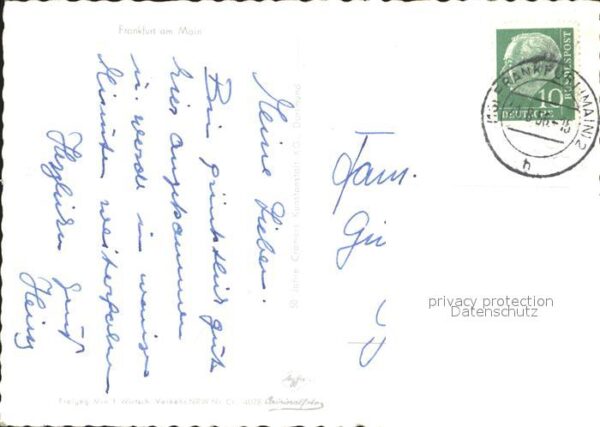 Frankfurt am Main
Meine Lieben.
Bin pünktlich gut
hier angekommen
u. werde in wenigen
Minuten weiterfahren
Herzlichen Gruß
Heinz
Fam.
50 Jahre Cramers Kunstanstalt KG., Dortmund
FRANKFURT (MAIN) 2
q
10
DEUTSCHE
BUNDESPOST
privacy protection
Datenschutz
Freigeg. Min. f. Wirtsch. u. Verkehr NRW Nr. Cr.